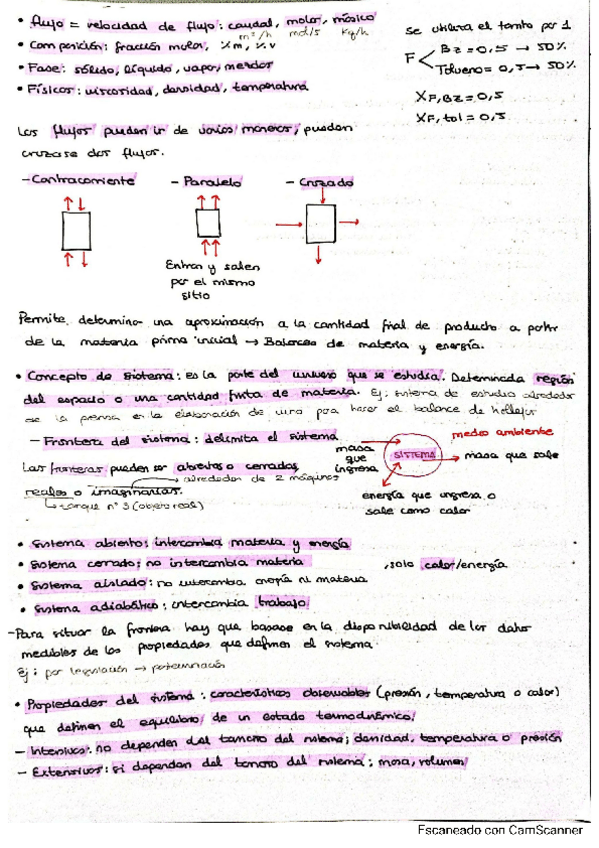 • flujo = velocidad de flujo: caudal, molar, másico
m³/h mol/s kg/h
• Composición: fracción molar, Xm, %v
• Fase: sólido, líquido, vapor, mezclas
• Físicas: viscosidad, densidad, temperatura
se utiliza el tanto por 1
F Bz = 0,5 → 50%
Tolueno = 0,5 → 50%
XF,Bz = 0,5
XF,tol = 0,5
Los flujos pueden ir de varias maneras, pueden
cruzarse dos flujos.
- Contracorriente - Paralelo - Cruzado
Entran y salen
por el mismo
sitio
Permite determinar una aproximación a la cantidad final de producto a partir
de la materia prima inicial → Balances de materia y energía.
• Concepto de sistema: es la parte del universo que se estudia. Determinada región
del espacio o una cantidad finita de materia. Ej: sistema de estudio alrededor
de la prensa en la elaboración de vino para hacer el balance de hollejos
- Frontera del sistema: delimita el sistema
Las fronteras pueden ser abiertas o cerradas,
reales o imaginarias. → alrededor de 2 máquinas
→ tanque nº 3 (objeto real)
masa
que
ingresa
SISTEMA
medio ambiente
masa que sale
energía que ingresa o
sale como calor
• Sistema abierto: intercambia materia y energía
• Sistema cerrado: no intercambia materia , solo calor/energía
• Sistema aislado: no intercambia energía ni materia
• Sistema adiabático: intercambia trabajo
- Para situar la frontera hay que basarse en la disponibilidad de los datos
medibles de las propiedades que definen el sistema.
Ej: por legislación →
• Propiedades del sistema: características observables (presión, temperatura o calor)
que definen el equilibrio de un estado termodinámico.
- Intensivas: no dependen del tamaño del sistema; densidad, temperatura o presión
- Extensivas: si dependen del tamaño del sistema; masa, volumen
Escaneado con CamScanner